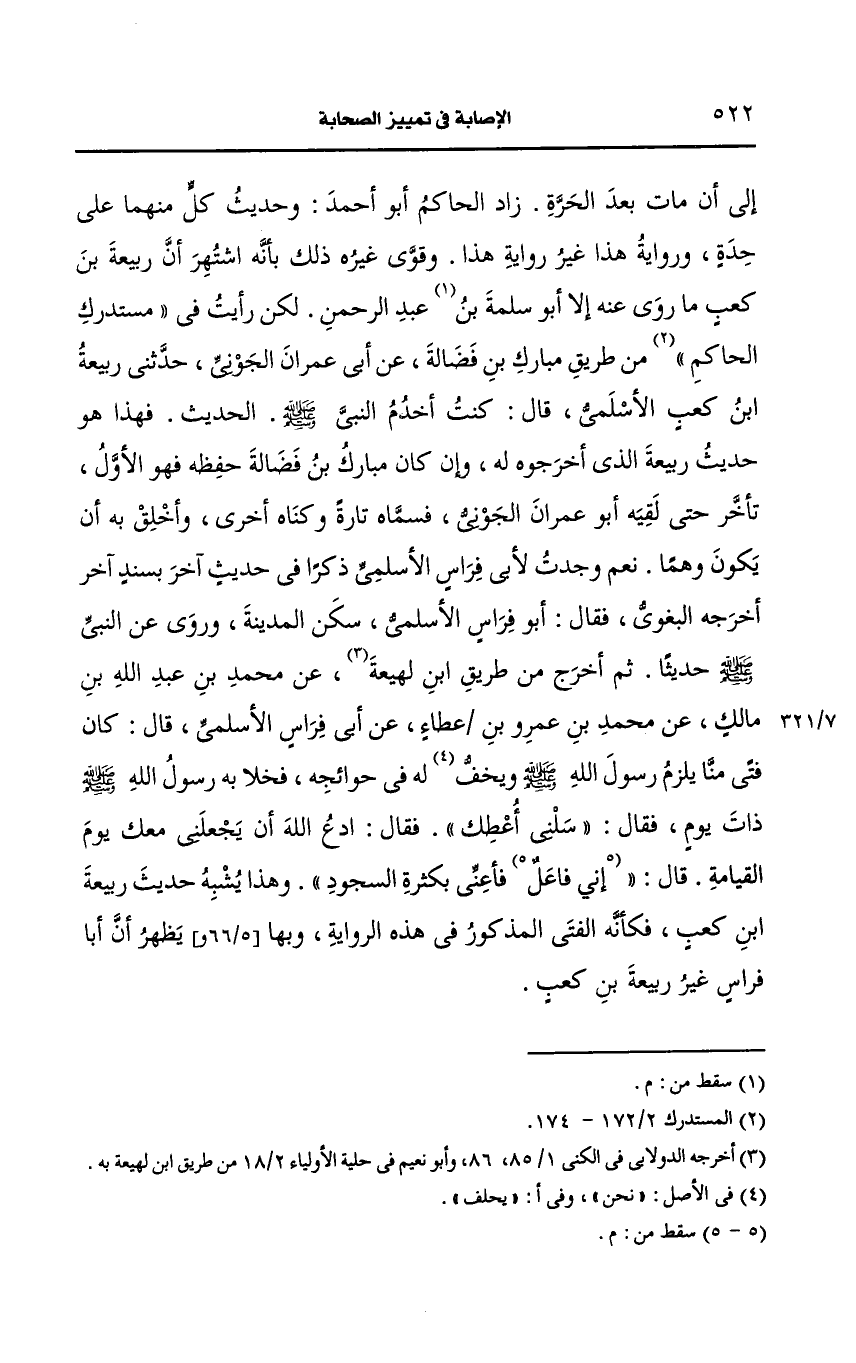 ٥٢٢ الإصابة فى تمييز الصحابة
إلى أن مات بعدَ الحَرَّةِ . زاد الحاكمُ أبو أحمدَ : وحديثُ كلٍّ منهما على
حِدَةٍ ، وروايةُ هذا غيرُ روايةِ هذا . وقوَّى غيرُه ذلك بأنَّه اشتُهِرَ أنَّ ربيعةَ بنَ
كعبٍ ما روَى عنه إلا أبو سلمةَ بنُ(١) عبدِ الرحمنِ . لكن رأيتُ فى « مستدركِ
الحاكمِ »(٢) من طريقِ مباركِ بنِ فَضَالةَ ، عن أبى عمرانَ الجَوْنِىِّ ، حدَّثنى ربيعةُ
ابنُ كعبٍ الأسْلَمىُّ ، قال : كنتُ أخدُمُ النبىَّ ﷺ . الحديث . فهذا هو
حديثُ ربيعةَ الذى أخرَجوه له ، وإن كان مباركُ بنُ فَضَالةَ حفِظه فهو الأوَّلُ ،
تأخَّر حتى لَقِيَه أبو عمرانَ الجَوْنِىُّ ، فسمَّاه تارةً وكنَاه أخرى ، وأخْلِقْ به أن
يَكونَ وهمًا . نعم وجدتُ لأبى فِرَاسٍ الأسلمِىِّ ذكرًا فى حديثٍ آخرَ بسندٍ آخر
أخرَجه البغوىُّ ، فقال : أبو فِرَاسٍ الأسلمىُّ ، سكَن المدينةَ ، وروَى عن النبىِّ
ﷺ حديثًا . ثم أخرَج من طريقِ ابنِ لهيعةَ(٣) ، عن محمدِ بنِ عبدِ اللهِ بنِ
٣٢١/٧ مالكٍ ، عن محمدِ بنِ عمرِو بنِ /عطاءٍ ، عن أبى فِرَاسٍ الأسلمىِّ ، قال : كان
فتًى منَّا يلزمُ رسولَ اللهِ ﷺ ويخفُّ(٤) له فى حوائجِه ، فخلا به رسولُ اللهِ ﷺ
ذاتَ يومٍ ، فقال : « سَلْنِى أُعْطِك » . فقال : ادعُ اللهَ أن يَجْعلَنِى معك يومَ
القيامةِ . قال : « (٥إني فاعَلٌ٥) فأعِنِّى بكثرةِ السجودِ » . وهذا يُشْبِهُ حديثَ ربيعةَ
ابنِ كعبٍ ، فكأنَّه الفتَى المذكورُ فى هذه الروايةِ ، وبها [٦٦/٥و] يَظهرُ أنَّ أبا
فراسٍ غيرُ ربيعةَ بنِ كعبٍ .
(١) سقط من : م .
(٢) المستدرك ١٧٢/٢ – ١٧٤.
(٣) أخرجه الدولابى فى الكنى ١/ ٨٥، ٨٦، وأبو نعيم فى حلية الأولياء ١٨/٢ من طريق ابن لهيعة به .
(٤) فى الأصل : « نحن » ، وفى أ : « يحلف » .
(٥ – ٥) سقط من : م .